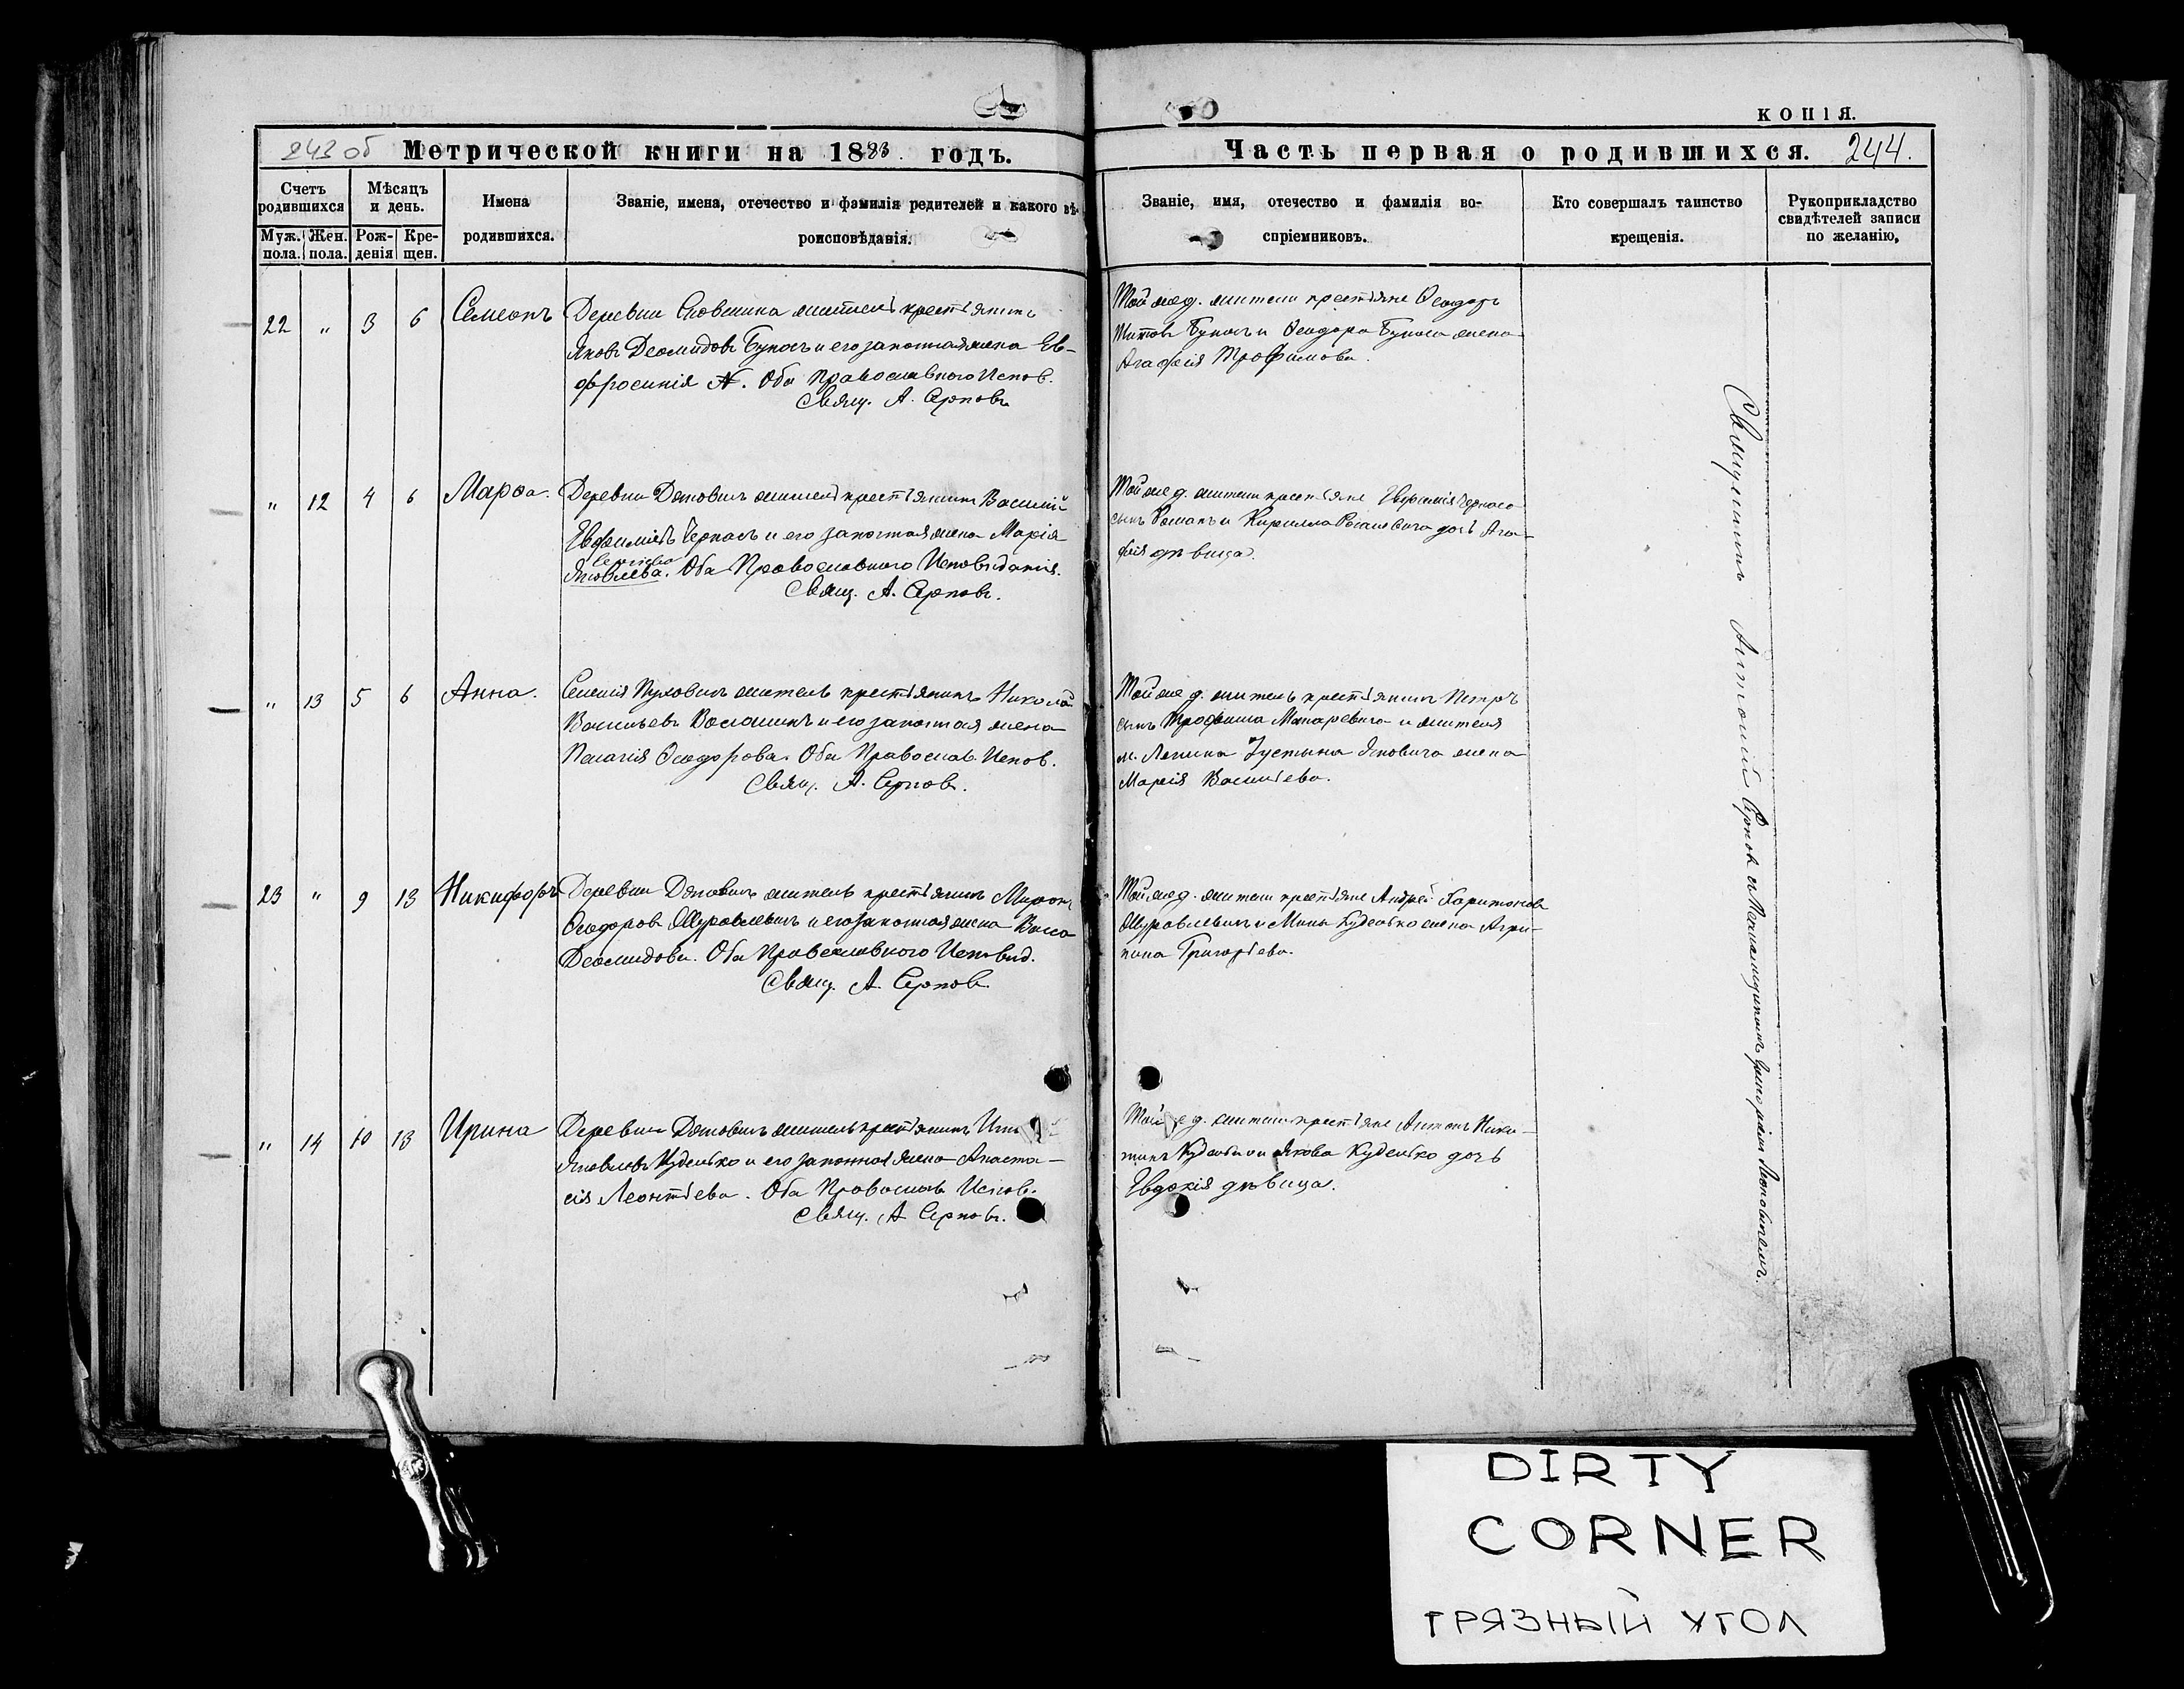 243 об Метрической книги на 1883 годъ.
Счетъ родившихся
Мѣсяцъ и день.
Имена родившихся.
Званіе, имена, отечество и фамилія родителей и какого вѣ-
роисповѣданія.
Муж. пола.
Жен. пола.
Рож- денія
Кре- щен.
22 " 3 6 Симеонъ
Деревни житель крестьянинъ
Яковъ Деомидовъ Букасъ и его законная жена Ев-
фросинія N. Оба Православного Испов.
Свящ. А. Серновъ
" 12 4 6 Марѳа.
Деревни Дяковичъ житель крестьянинъ Василій
Евфиміевъ Черкасъ и его законная жена Марія
Яковлева. Оба Православного Исповѣданія.
Свящ. А. Серновъ.
" 13 5 6 Анна.
Селенія Пуховичъ житель крестьянинъ Николай
Васильевъ и его законная жена
Пелагія Ѳеодорова. Оба Православ. Испов.
Свящ. А. Серновъ.
23 " 9 13 Никифоръ
Деревни Дяковичъ житель крестьянинъ Миронъ
Ѳеодоровъ Журавлевичъ и его законная жена Васса
Деомидова. Оба Православного Исповѣд.
Свящ. А. Серновъ.
" 14 10 13 Ирина
Деревни Дяковичъ житель крестьянинъ
Яковлевъ Куделько и его законная жена Анаста-
сія Леонтьева. Оба Православ. Испов.
Свящ. А. Серновъ.
КОПІЯ.
Часть первая о родившихся. 244.
Званіе, имя, отечество и фамилія во-
спріемниковъ.
Кто совершалъ таинство
крещенія.
Рукоприкладство
свидѣтелей записи
по желанію,
Той же д. жители крестьяне Ѳеодоръ
Титовъ Букасъ и Ѳеодора Букаса жена
Агафія Трофимова.
Той же д. жители крестьяне Евфимія Черкаса
сынъ Романъ и Кирилла дочь Ага-
фія дѣвица.
Той же д. житель крестьянинъ Петръ
сынъ Трофима Макаревича и жителя
м. Ленина Іустина Яковича жена
Марія Васильева.
Той же д. жители крестьяне Андрей Харитоновъ
Журавлевичъ и Мины Куделько жена Агри-
пина Григорьева.
Той же д. жители крестьяне Антонъ Ники-
тинъ Куделько и Якова Куделько дочь
Евдокія дѣвица.
Священникъ Антоній Серновъ съ Псаломщикомъ Григоріемъ
DIRTY
CORNER
ГРЯЗНЫЙ УГОЛ